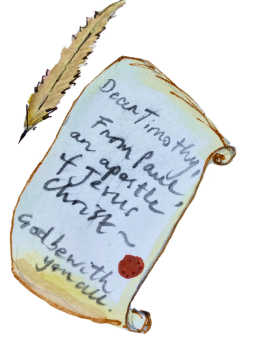 Dear Timothy,
From Paul,
an apostle
of Jesus
Christ ~
God be with
you all.